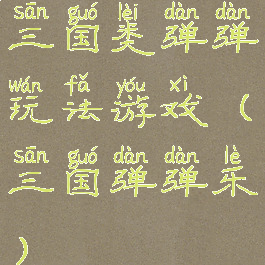 sān guó lèi dàn dàn
三国类弹弹
wán fǎ yóu xì
玩法游戏（
sān guó dàn dàn lè
三国弹弹乐
）